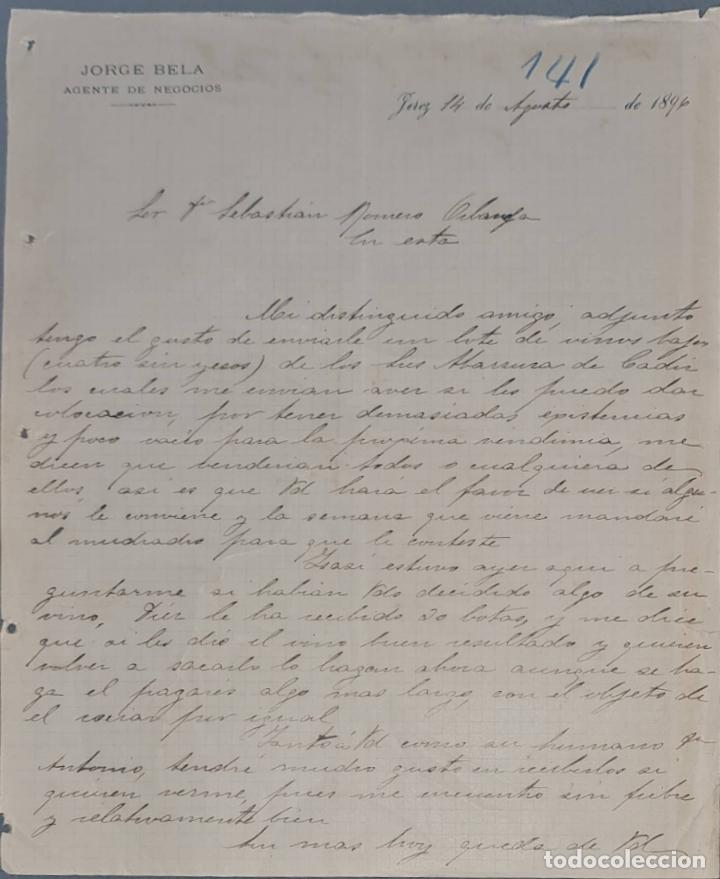 JORGE BELA
AGENTE DE NEGOCIOS
141
Jerez 14 de Agosto de 1896
Sor Dn Sebastián Romero
En esta
Mi distinguido amigo, adjunto
tengo el gusto de enviarle un lote de vinos bajos
(cuatro sin yesos) de los Sres de Cadiz
los cuales me envian aver si les puedo dar
colocacion, por tener demasiadas existencias
y poco vacio para la proxima vendimia, me
dicen que venderian todos o cualquiera de
ellos, asi es que Vd hará el favor de ver si algu-
nos le conviene y la semana que viene mandaré
al muchacho para que le conteste
estuvo ayer aqui a pre-
guntarme si habian Vds decidido algo de su
vino, le ha recibido 20 botas, y me dice
que si les dió el vino buen resultado y quieren
volver a sacarlo lo hagan ahora aunque se ha-
ga el pagarés algo mas largo, con el objeto de
el por igual
Tanto á Vd como su hermano Dn
Antonio, tendré mucho gusto en recibirlos si
quieren verme, pues me encuentro sin fiebre
y relativamente bien
Sin mas hoy queda de Vd
todocoleccion
todocoleccion.net